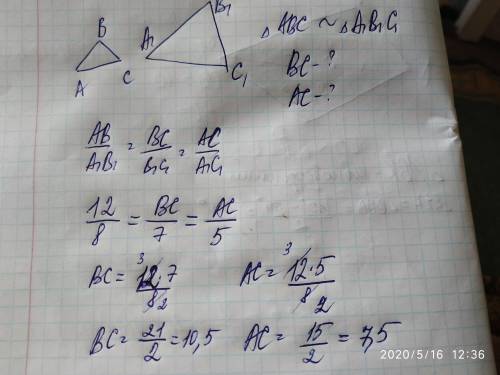 B
A
C
A₁
B₁
C₁
△ABC ~ △A₁B₁C₁
BC - ?
AC - ?
AB/A₁B₁ = BC/B₁C₁ = AC/A₁C₁
12/8 = BC/7 = AC/5
BC = 12³·7/8 2 AC = 12³·5/8 2
BC = 21/2 = 10,5 AC = 15/2 = 7,5
2020/5/16 12:36